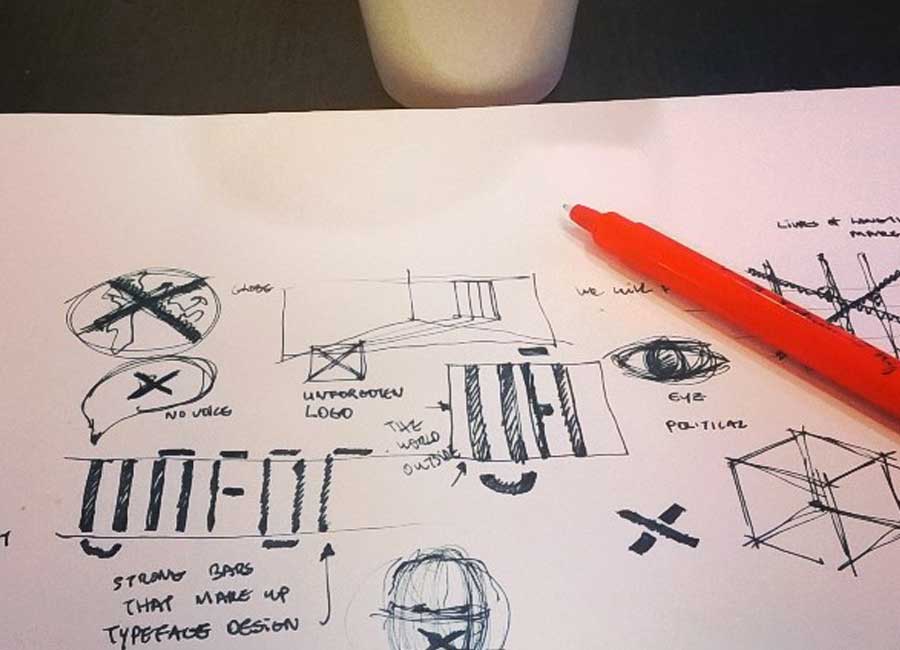 LINES & LENGTH
GLOBE
WE WILL
NO VOICE
UNFORGOTEN
LOGO
THE
WORLD
OUTSIDE
EYE
POLITICAL
UNFOR
STRONG BARS
THAT MAKE UP
TYPEFACE DESIGN